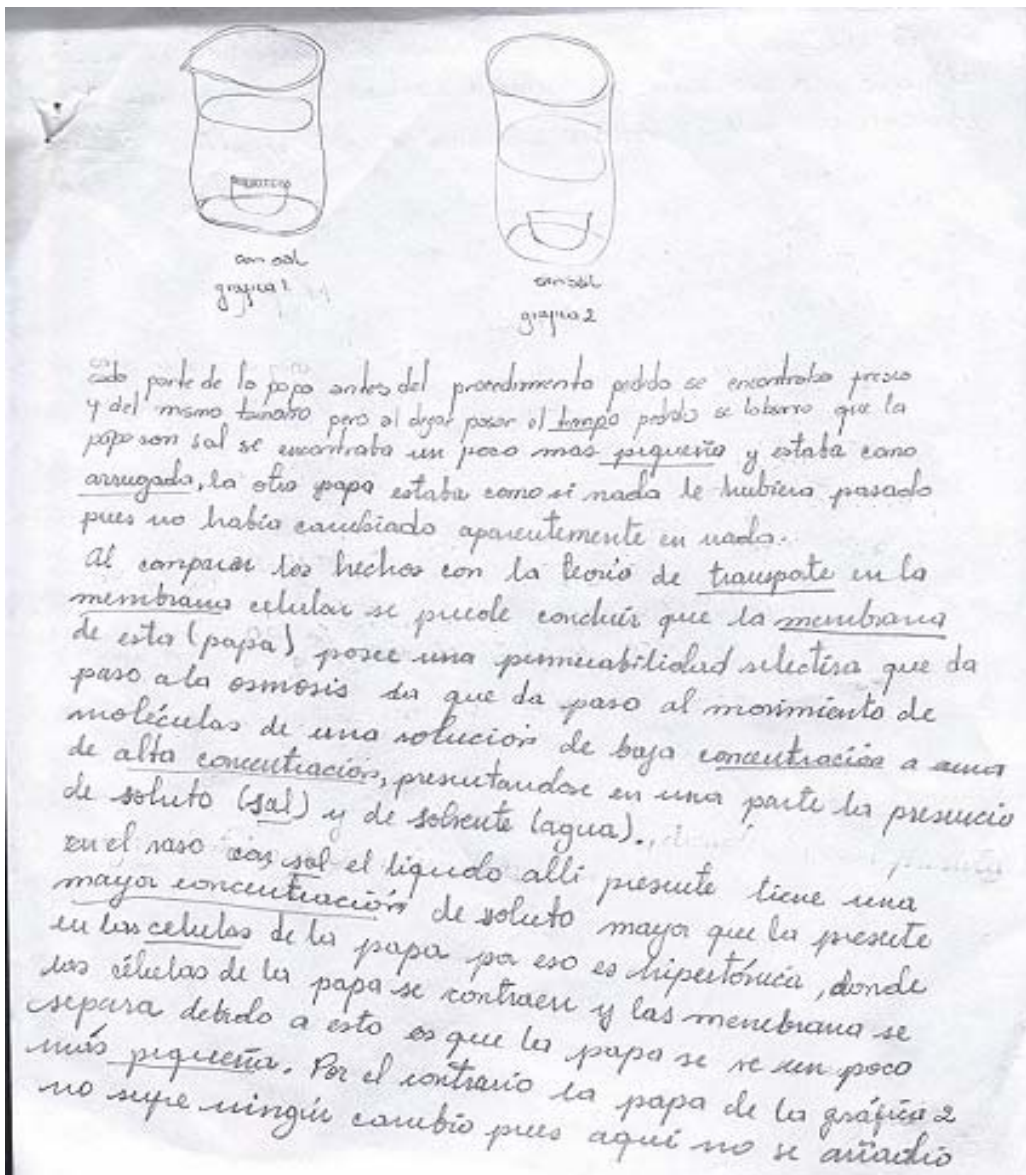 con sal
gráfica 1
sin sal
gráfica 2
Cada parte de la papa antes del procedimiento pedido se encontraba fresca
y del mismo tamaño pero al dejar pasar el tiempo pedido se observo que la
papa con sal se encontraba un poco mas pequeña y estaba como
arrugada, la otra papa estaba como si nada le hubiera pasado
pues no había cambiado aparentemente en nada.
Al comparar los hechos con la teoria de transpote en la
membrana celular se puede concluir que la membrana
de esta (papa), posee una permeabilidad selectiva que da
paso a la osmosis que da paso al movimiento de
moléculas de una solución de baja concentración a una
de alta concentración, presentandose en una parte la presencia
de soluto (sal) y de solvente (agua).
en el vaso con sal el liquido alli presente tiene una
mayor concentración de soluto mayor que la presente
en las celulas de la papa por eso es hipertónica, donde
las células de la papa se contraen y las membrana se
separa debido a esto es que la papa se ve un poco
más pequeña. Por el contrario la papa de la gráfica 2
no sufre ningún cambio pues aqui no se añadio